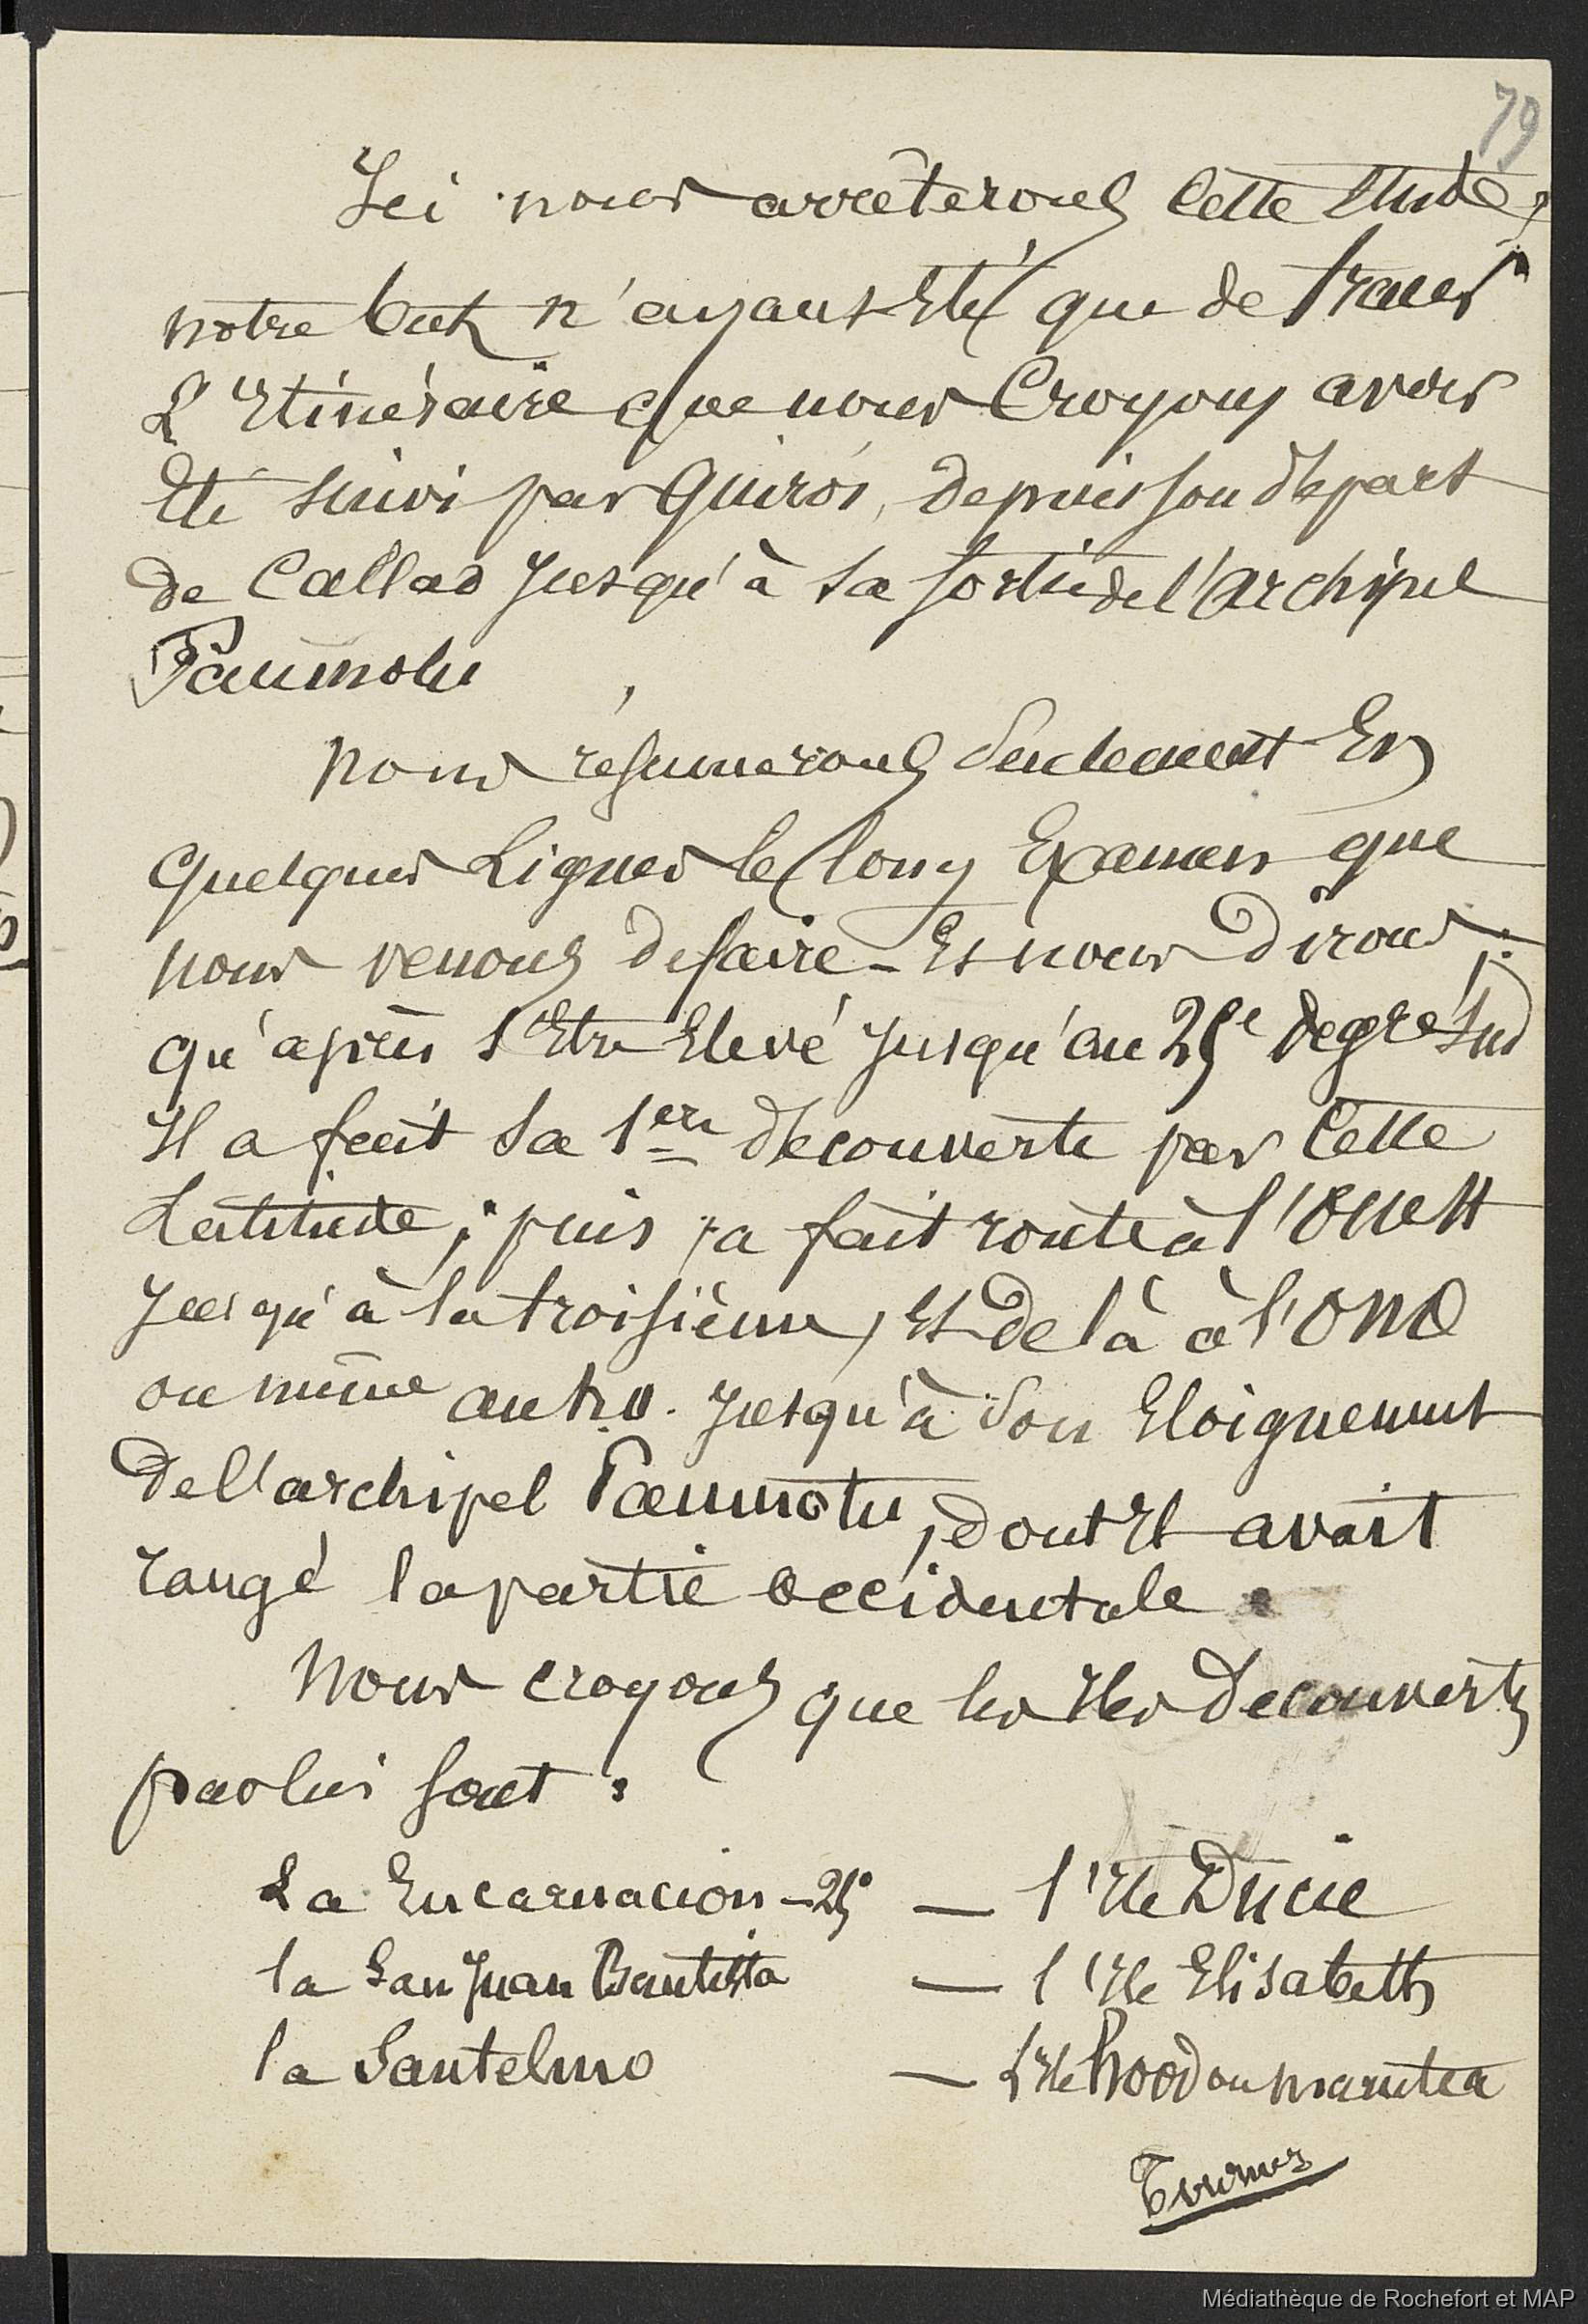 79
Ici nous arrêterons cette étude,
notre but n'ayant été que de tracer
l'Itinéraire que nous croyons avoir
été suivi par Quirós, depuis son départ
de Callao jusqu'à sa sortie de l'archipel
Paumotu
Nous résumerons seulement en
quelques lignes le long examen que
nous venons de faire _ Et nous dirons :
qu'après s'être élevé jusqu'au 25e degré sud
Il a fait sa 1ere découverte par cette
Latitude ; puis a fait route à l'Ouest
jusqu'à la troisième, et de là à l'ONO
ou même au N.O. jusqu'à son éloignement
de l'archipel Paumotu, dont il avait
rangé la partie occidentale.
Nous croyons que les Iles découvertes
par lui sont :
La Encarnacion - 25° — l'Ile Ducie
la San Juan Bautista — l'Ile Elisabeth
la Santelmo — L'Ile hood ou marutea
Tournez
Médiathèque de Rochefort et MAP